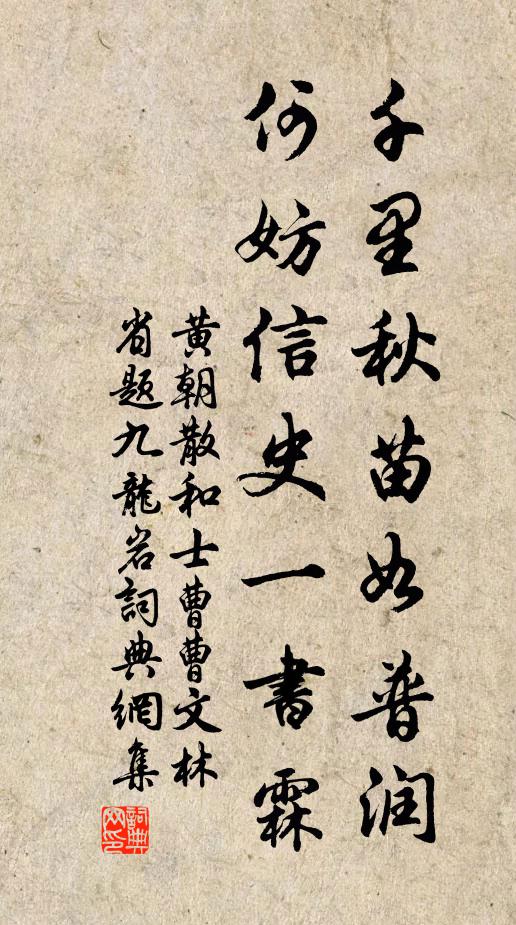 千里秋苗如普润
何妨信史一书霖
黄朝散和士曹曹文林
省题九龍岩詞典網集
詞典
网印